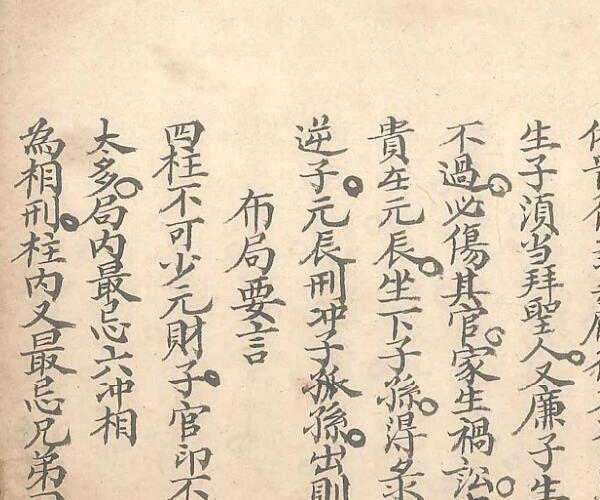 生子湏当拜聖人。又廉子生
不過。必傷其官。家生禍訟。
貴在元辰。坐下子孫。得
逆子。元辰刑冲子孤孫。出則
布局要言
四柱不可少元財子。官印不
太多。局内最忌六冲相
為相刑。柱内又最忌兄弟